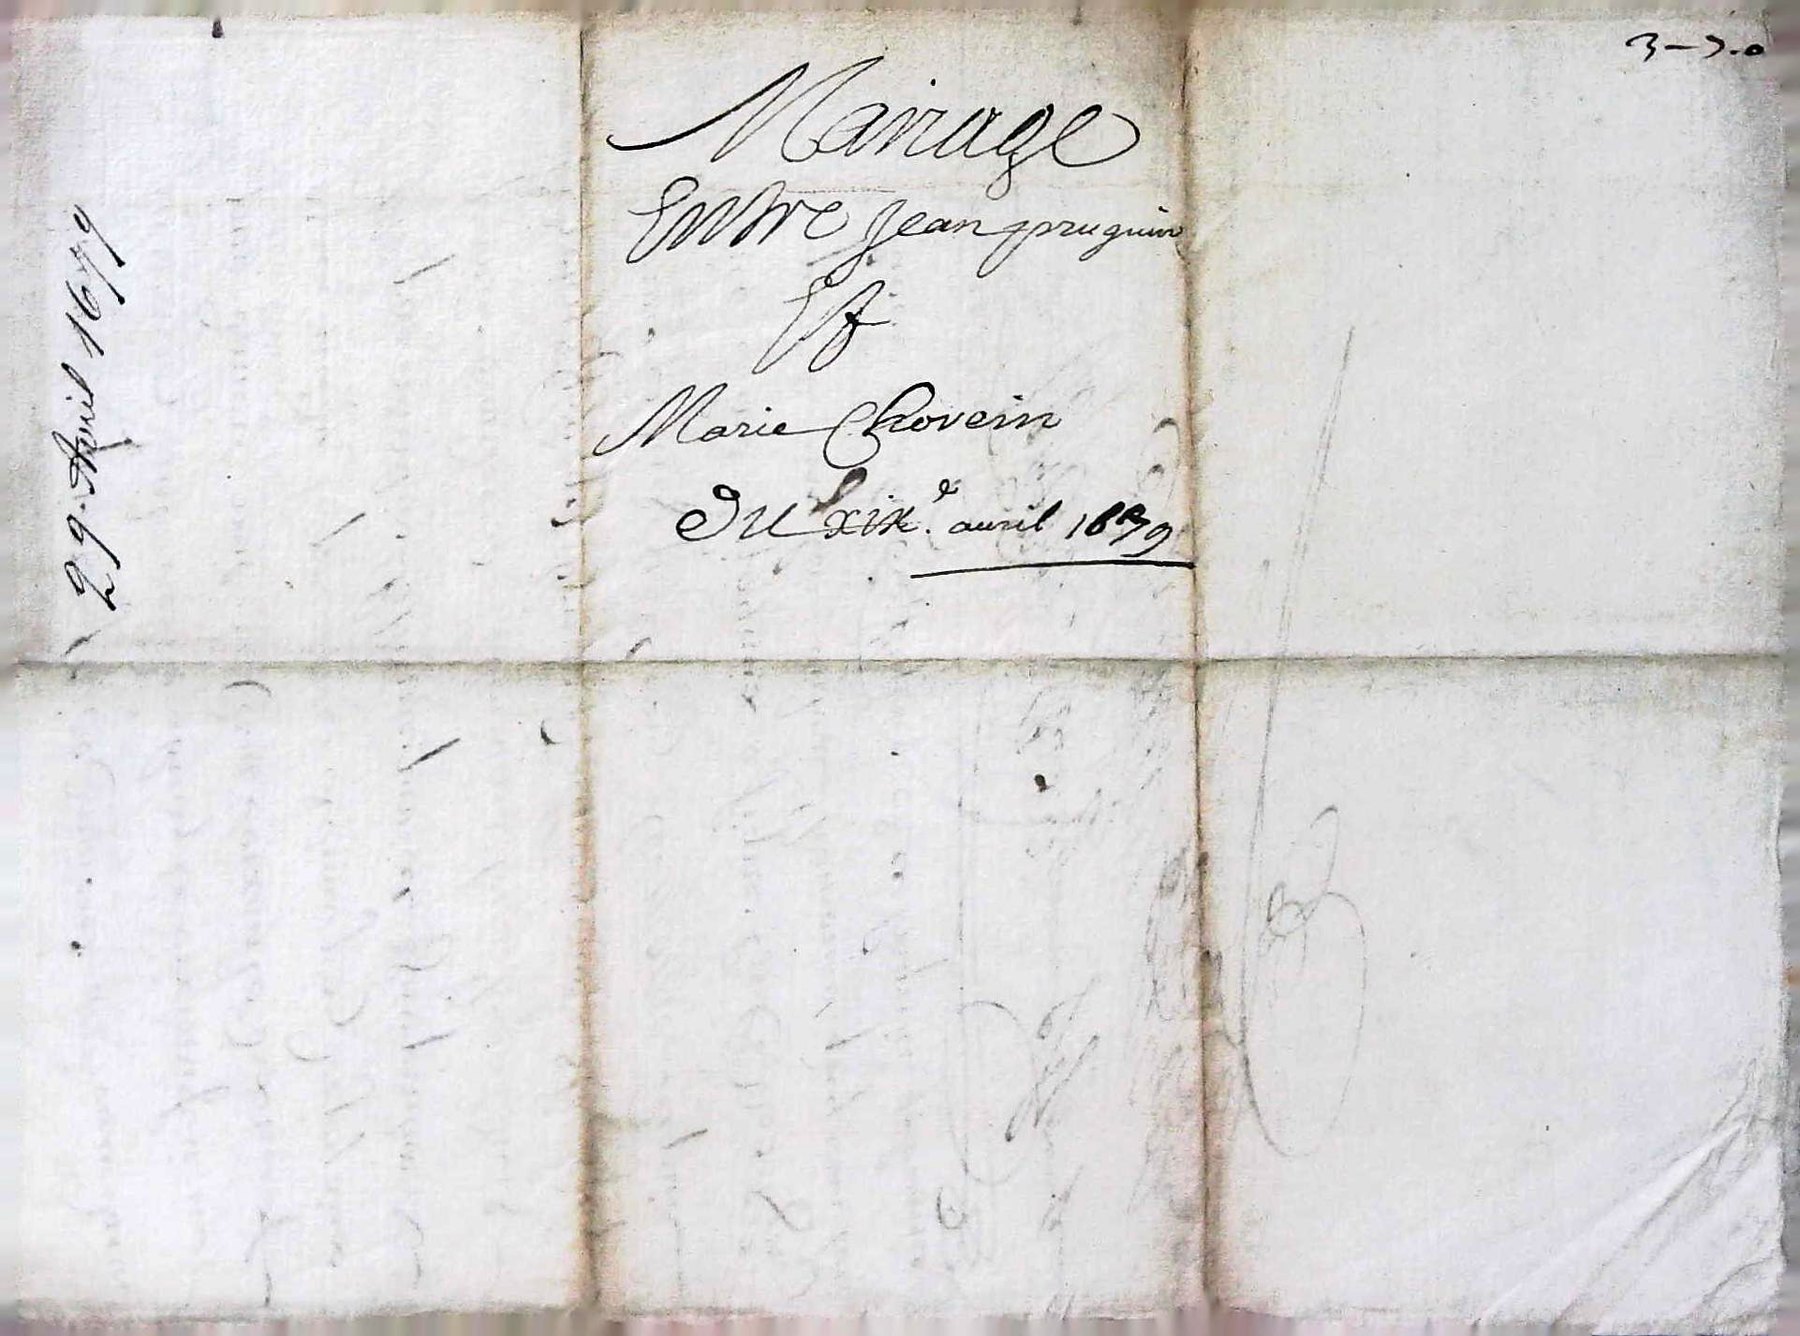 3-7.0
Mariage
Entre Jean pruguin
Et
Marie Chovein
Du xixe. avril 1679
29. Avril 1679